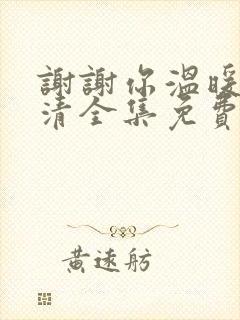 謝謝你溫暖
清全集免費
黃遠舫